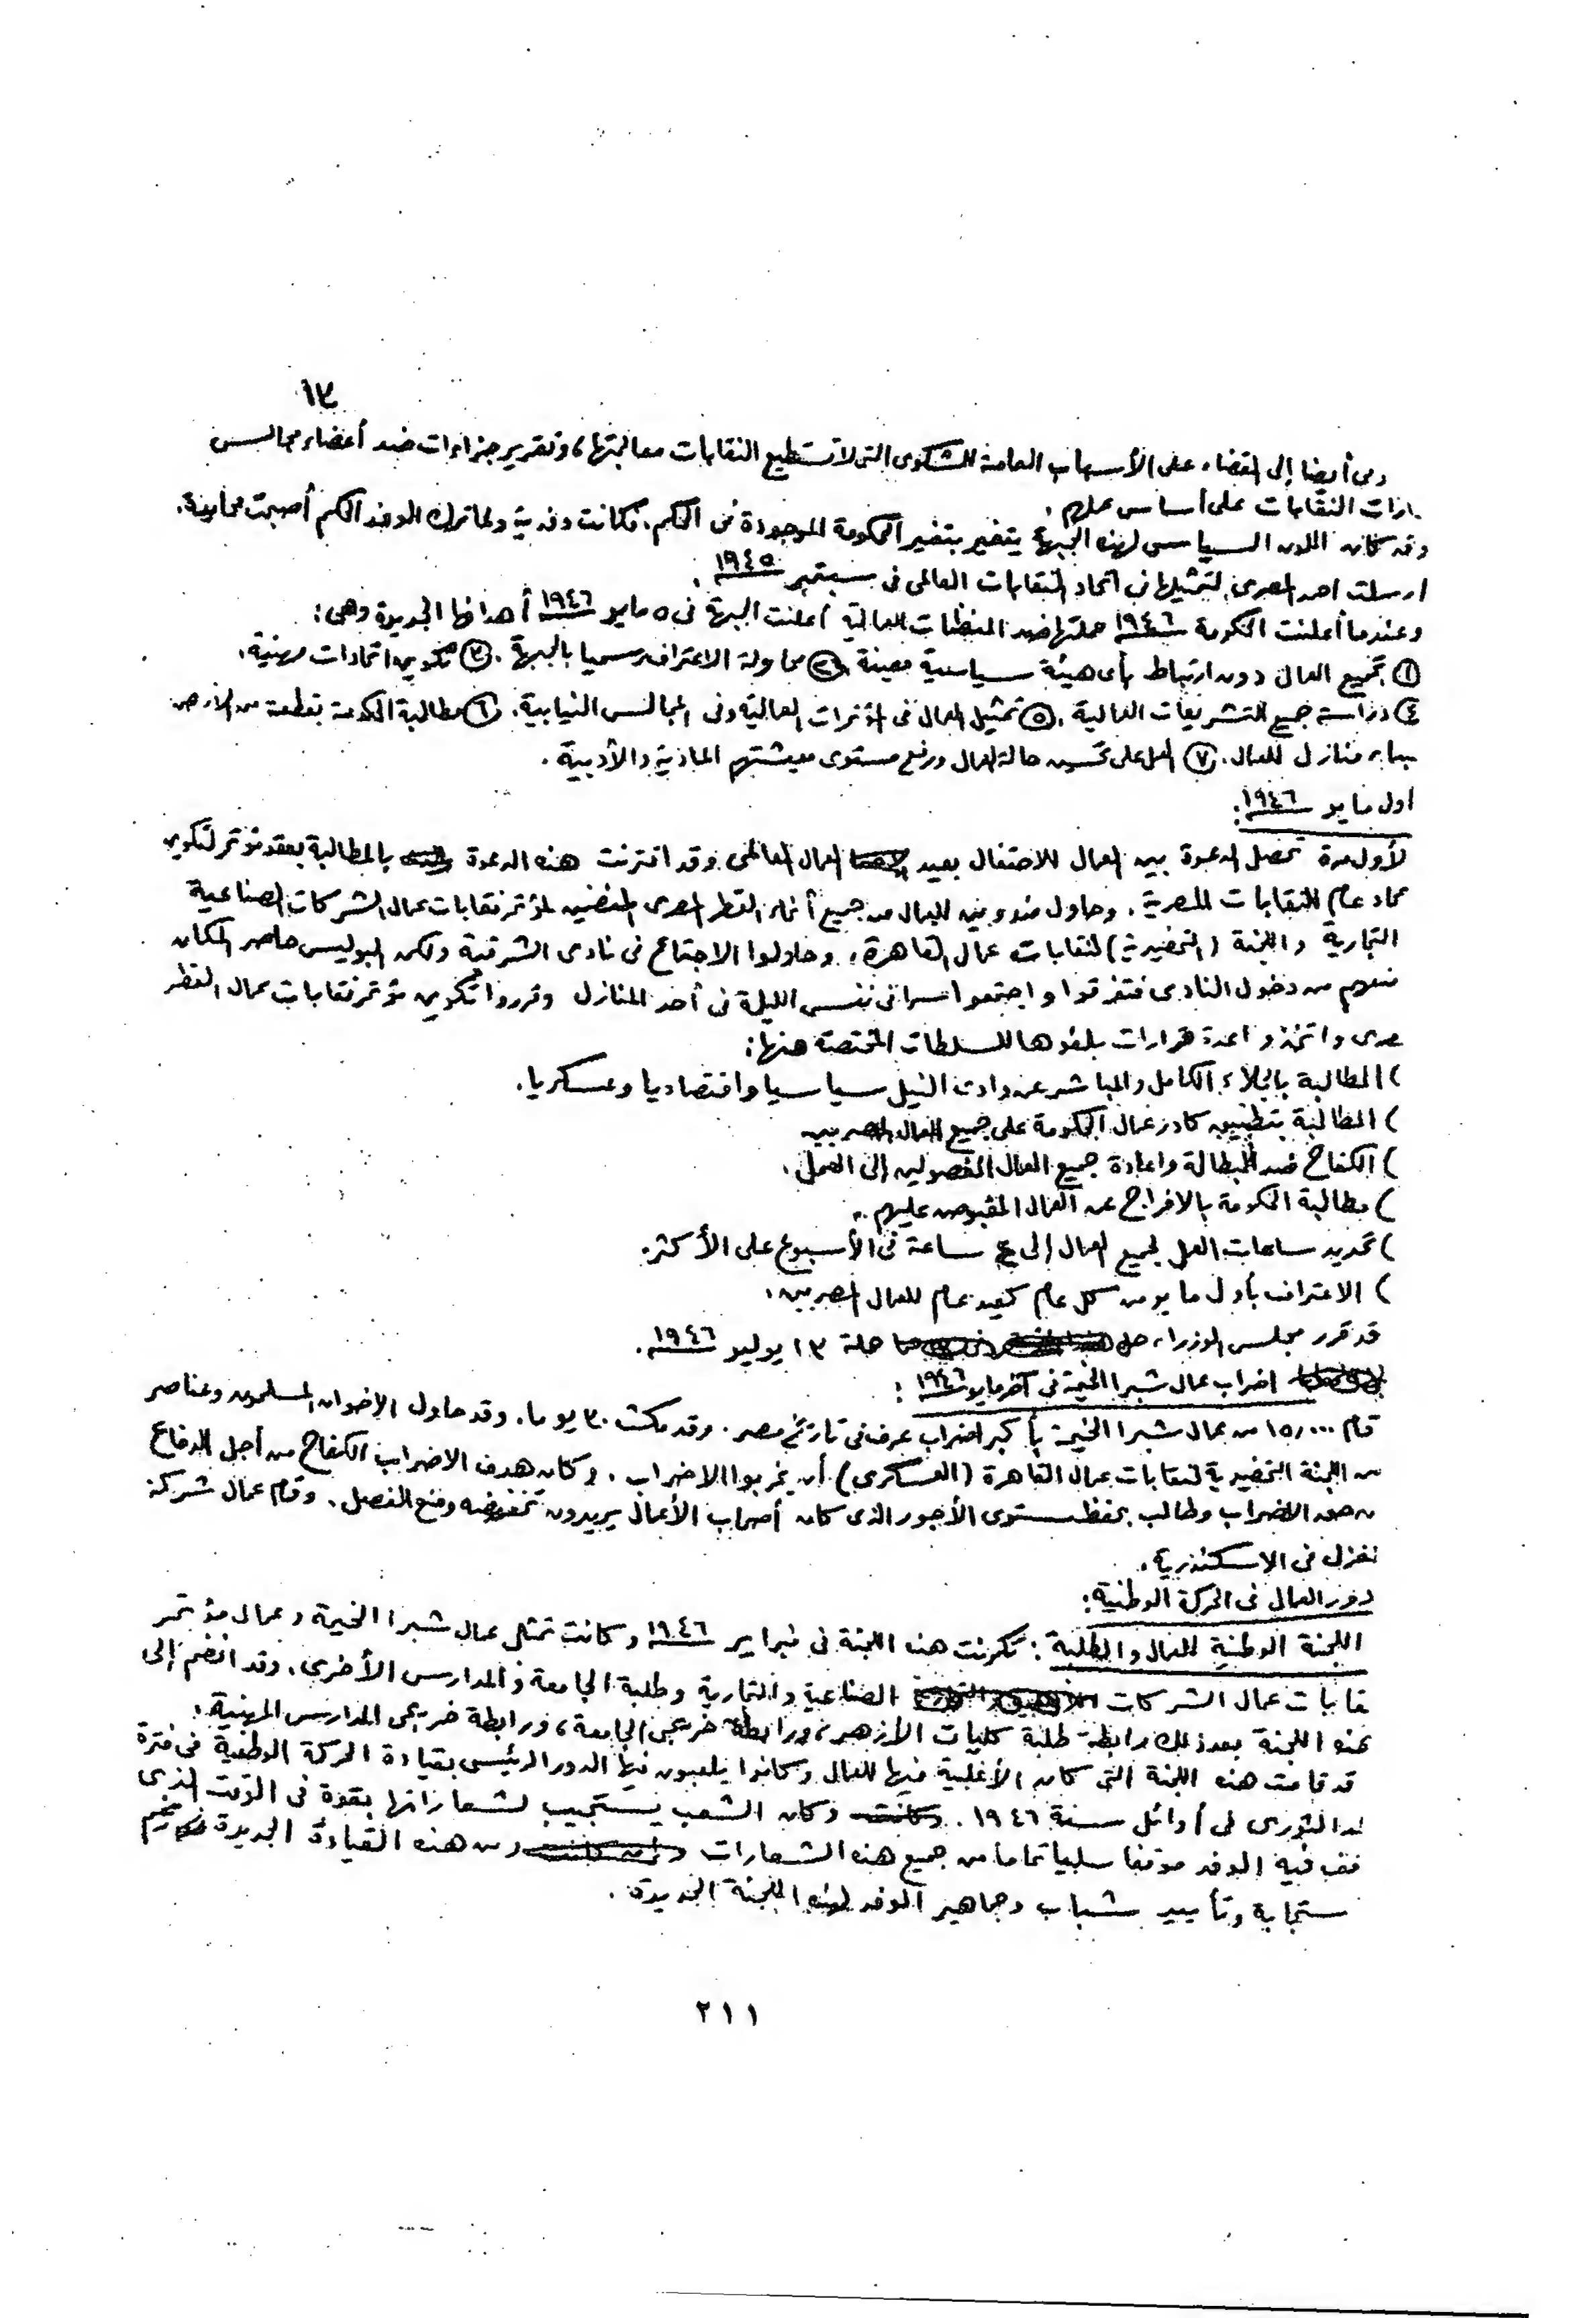 ١٣
أيضا إلى القضاء على الأسباب العامة للشكوى التى لا تستطيع النقابات معالجتها، وتقرير جزاءات ضد أعضاء مجالس
ارات النقابات على أساس عملهم.
وقد كان اللون السياسى لهذه الجبهة يتغير بتغير الحكومة الموجودة فى الحكم. فكانت وفدية ولما ترك الوفد الحكم أصبحت محايدة.
ارسلت احمد المصرى لتمثيلها فى اتحاد النقابات العالمى فى سبتمبر ١٩٤٥.
وعندما أعلنت الحكومة ١٩٤٦ حملتها ضد المنظمات العمالية أعلنت الجبهة فى ٥ مايو ١٩٤٦ أهدافها الجديدة وهى:
(١) تجميع العمال دون ارتباط بأى هيئة سياسية معينة (٢) محاولة الاعتراف رسميا بالجبهة. (٣) تكوين اتحادات مهنية.
(٤) دراسة جميع التشريعات العمالية. (٥) تمثيل العمال فى المؤتمرات العمالية وفى المجالس النيابية. (٦) مطالبة الحكومة بقطعة من الأرض
بناء منازل للعمال. (٧) العمل على تحسين حالة العمال ورفع مستوى معيشتهم المادية والأدبية.
أول مايو ١٩٤٦:
لأول مرة تحصل الدعوة بين العمال للاحتفال بعيد العمال العالمى وقد اقترنت هذه الدعوة بالمطالبة بعقد مؤتمر لتكوين
تحاد عام للنقابات المصرية. وحاول مندوبين للعمال من جميع أنحاء القطر المصرى المنضمين لمؤتمر نقابات عمال الشركات الصناعية
التجارية واللجنة (التحضيرية) لنقابات عمال القاهرة، وحاولوا الاجتماع فى نادى الشرقية ولكن البوليس حاصر المكان
منعهم من دخول النادى فتفرقوا واجتمعوا سرا فى نفس الليلة فى أحد المنازل وقرروا تكوين مؤتمر نقابات عمال القطر
صرى واتخذوا عدة قرارات بلغوها للسلطات المختصة منها:
) المطالبة بالجلاء الكامل والمباشر عن وادى النيل سياسيا واقتصاديا وعسكريا.
) المطالبة بتطبيق كادر عمال الحكومة على جميع العمال المصريين
) الكفاح ضد البطالة واعادة جميع العمال المفصولين إلى العمل.
) مطالبة الحكومة بالافراج عن العمال المقبوض عليهم.
) تحديد ساعات العمل لجميع العمال إلى ٤٠ ساعة فى الأسبوع على الأكثر.
) الاعتراف بأول مايو من كل عام كعيد عام للعمال المصريين.
قد قرر مجلس الوزراء حل حملة ١٣ يوليو ١٩٤٦.
اضراب عمال شبرا الخيمة فى آخر مايو ١٩٤٦:
قام ١٥,٠٠٠ من عمال شبرا الخيمة بأكبر اضراب عرف فى تاريخ مصر. وقد مكث ٣٠ يوما. وقد حاول الإخوان المسلمون وعناصر
من اللجنة التحضيرية لنقابات عمال القاهرة (العسكرى) أن يخربوا الاضراب. وكان هدف الاضراب الكفاح من أجل الدفاع
ن حق الاضراب وطالب بحفظ مستوى الأجور الذى كان أصحاب الأعمال يريدون تخفيضه ومنع الفصل. وقام عمال شركة
لغزل فى الاسكندرية.
دور العمال فى الحركة الوطنية:
اللجنة الوطنية للعمال والطلبة: تكونت هذه اللجنة فى فبراير ١٩٤٦ وكانت تمثل عمال شبرا الخيمة وعمال مؤتمر
قابات عمال الشركات الصناعية والتجارية وطلبة الجامعة والمدارس الأخرى. وقد انضم إلى
هذه اللجنة بعد ذلك رابطة طلبة كليات الأزهر، ورابطة خريجى الجامعة، ورابطة خريجى المدارس المهنية.
قد قامت هذه اللجنة التى كان الأغلبية فيها للعمال وكانوا يلعبون فيها الدور الرئيسى بقيادة الحركة الوطنية فى فترة
لمد الثورى فى أوائل سنة ١٩٤٦. وكان الشعب يستجيب لشعاراتها بقوة فى الوقت الذى
قف فيه الوفد موقفا سلبيا تماما من جميع هذه الشعارات ومن هذه القيادة الجديدة رغم
ستجابة وتأييد شباب وجماهير الوفد لهذه اللجنة الجديدة.
٢١١